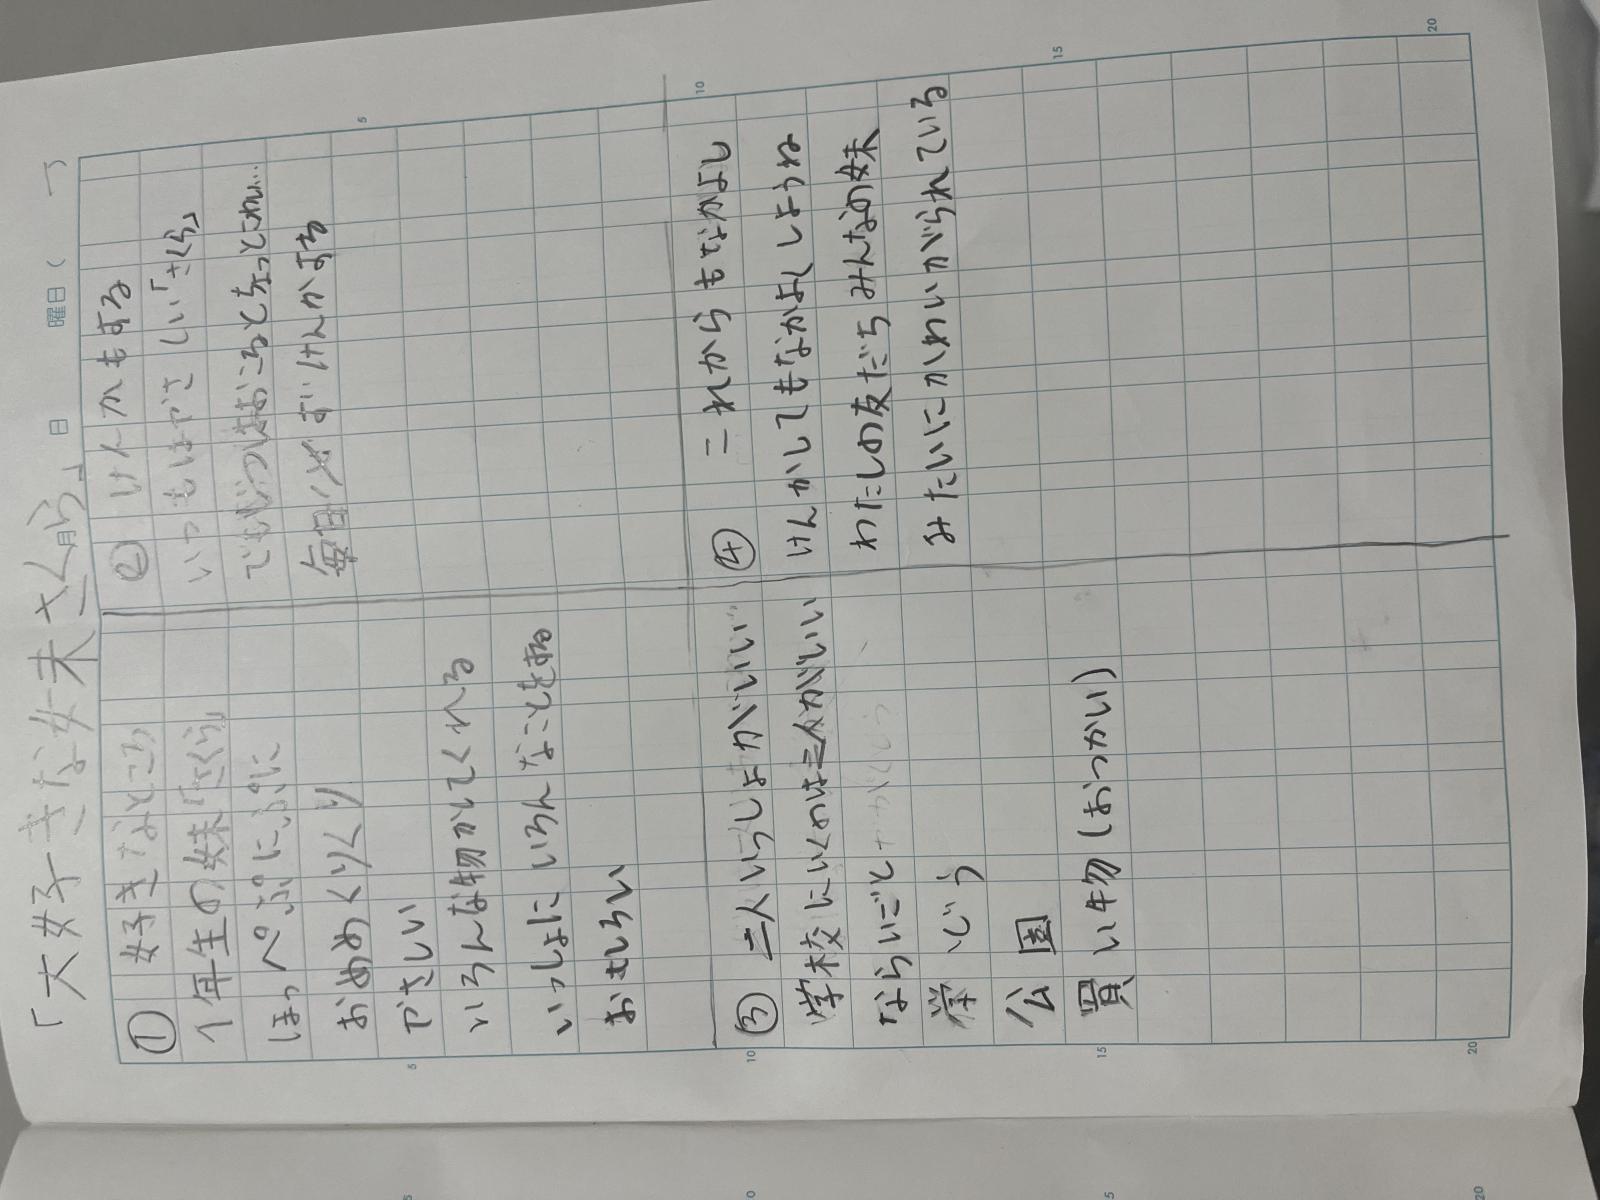 「大好きな妹さくら」
日 曜日( )
① 好きなところ
1年生の妹「さくら」
ほっぺぷにぷに
おめめくりくり
やさしい
いろんな物かしてくれる
いっしょにいろんなことをする
おもしろい
② けんかもする
いつもはやさしい「さくら」
でもじつはおこるとちょっとこわい…
毎日必ずけんかする
③ 二人いっしょがいい
学校にいくのは三人がいい
ならいごと
学どう
公園
買い物(おつかい)
④ これからもなかよし
けんかしてもなかよくしようね
わたしの友だちみんなの妹
みたいにかわいがられている
5
10
15
20
5
10
15
20